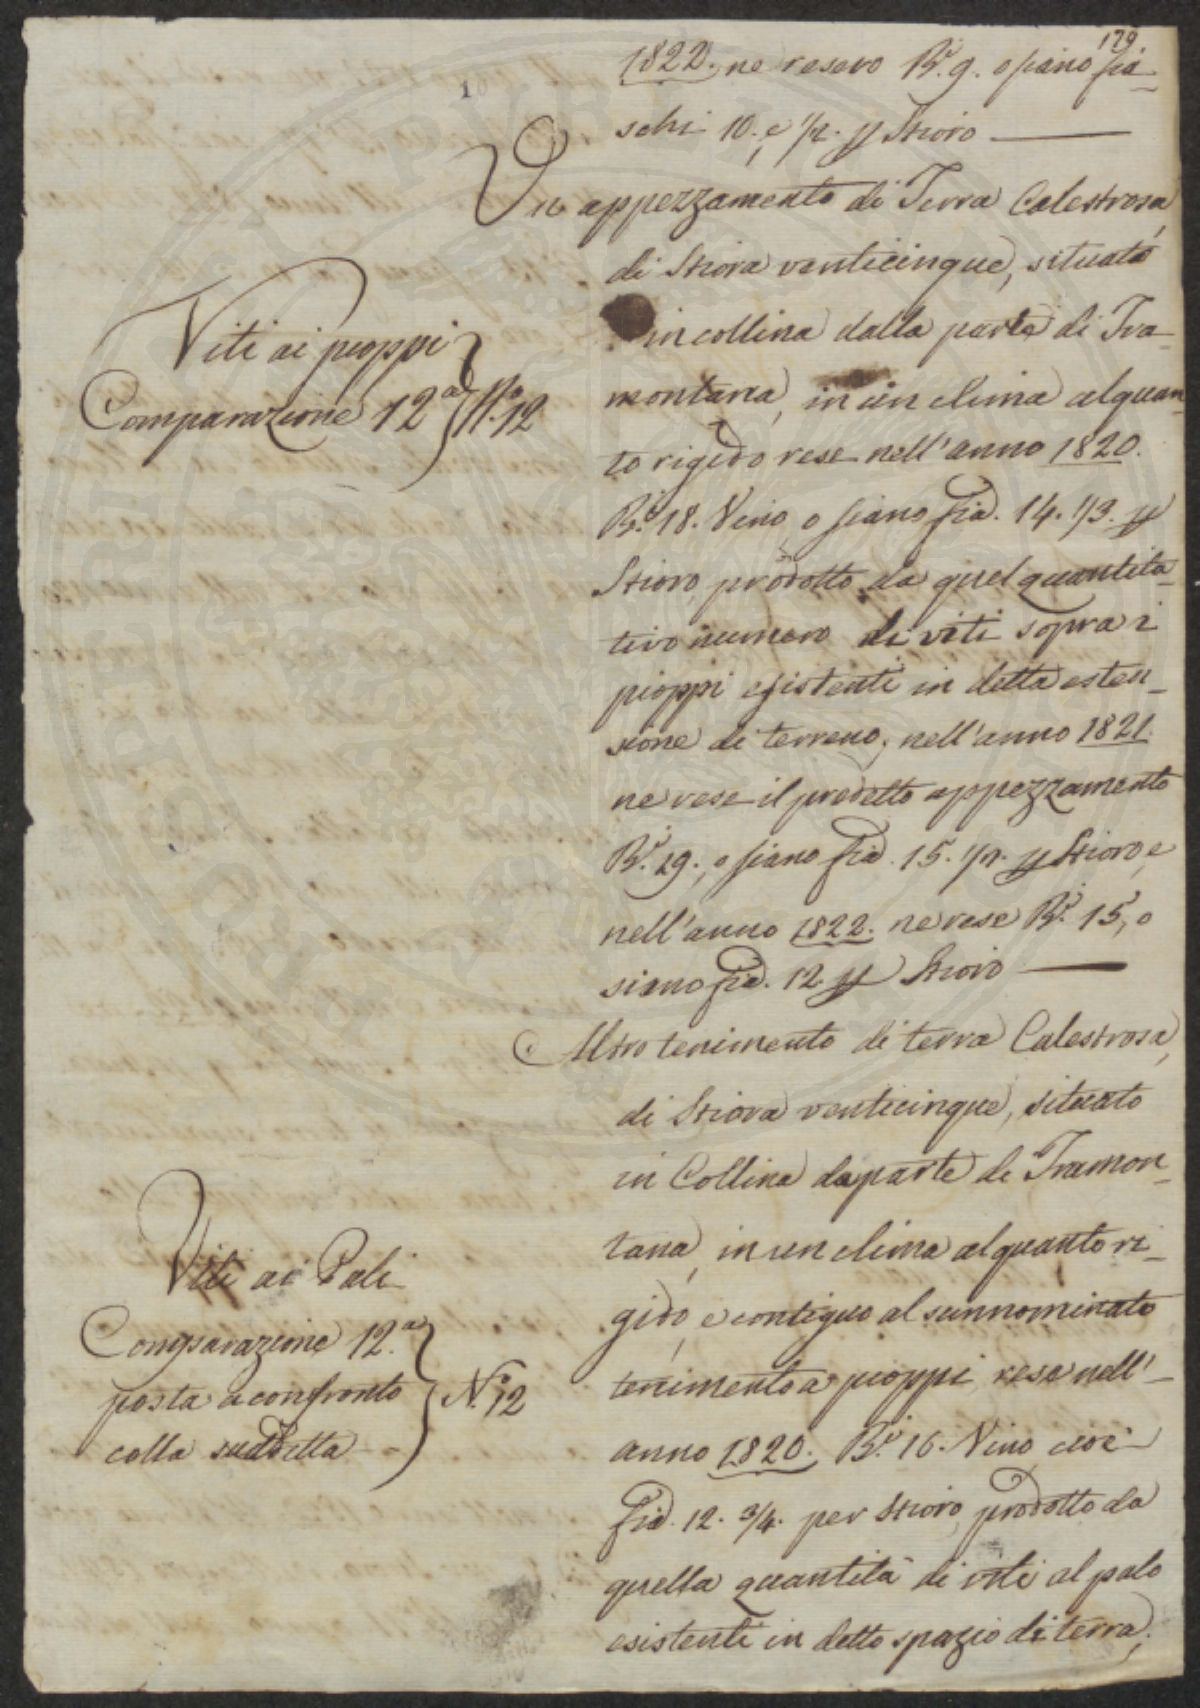 179
1822. ne resero B.i 9. o siano fia-
schi 10. e 1/2. p Stioro
Un appezzamento di Terra Calestrosa,
di Stiora venticinque, situato
in collina dalla parte di Tra-
montana, in un clima alquan-
to rigido rese nell'anno 1820.
B.i 18. Vino, o siano fia. 14. 1/3. p
Stioro, prodotto da quel quantita-
tivo numero di viti sopra i
pioppi esistenti in detta esten-
sione di terreno; nell'anno 1821.
ne rese il predetto appezzamento
B.i 19., o siano fia. 15. 1/2. p Stioro, e
nell'anno 1822. ne rese B.i 15, o
siano fia. 12. p Stioro
Altro tenimento di terra Calestrosa,
di Stiora venticinque, situato
in Collina da parte di Tramon-
tana, in un clima alquanto ri-
gido, e contiguo al sunnominato
tenimento a pioppi rese nell'-
anno 1820. B.i 16. Vino cioè
fia. 12. 3/4. per Stioro, prodotto da
quella quantità di viti al palo
esistenti in detto spazio di terra;
Viti ai pioppi
Comparazione 12.a N.o 12
Viti ai Pali
Comparazione 12.a
posta a confronto N.o 12
colla suddetta